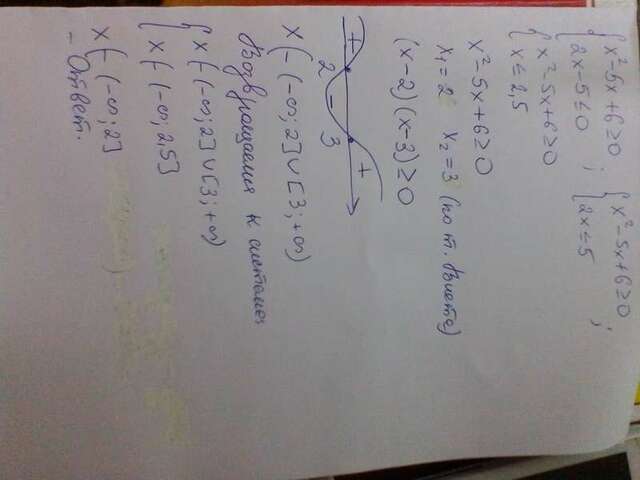 { x² - 5x + 6 ≥ 0 ; { x² - 5x + 6 ≥ 0 ;
{ 2x - 5 ≤ 0 { 2x ≤ 5
{ x² - 5x + 6 ≥ 0
{ x ≤ 2,5
x² - 5x + 6 ≥ 0
x₁ = 2 x₂ = 3 (по т. Виета)
(x - 2)(x - 3) ≥ 0
+ 2 - 3 +
x ∈ (-∞; 2] ∪ [3; +∞)
Возвращаемся к системе:
{ x ∈ (-∞; 2] ∪ [3; +∞)
{ x ∈ (-∞; 2,5]
x ∈ (-∞; 2]
- Ответ.